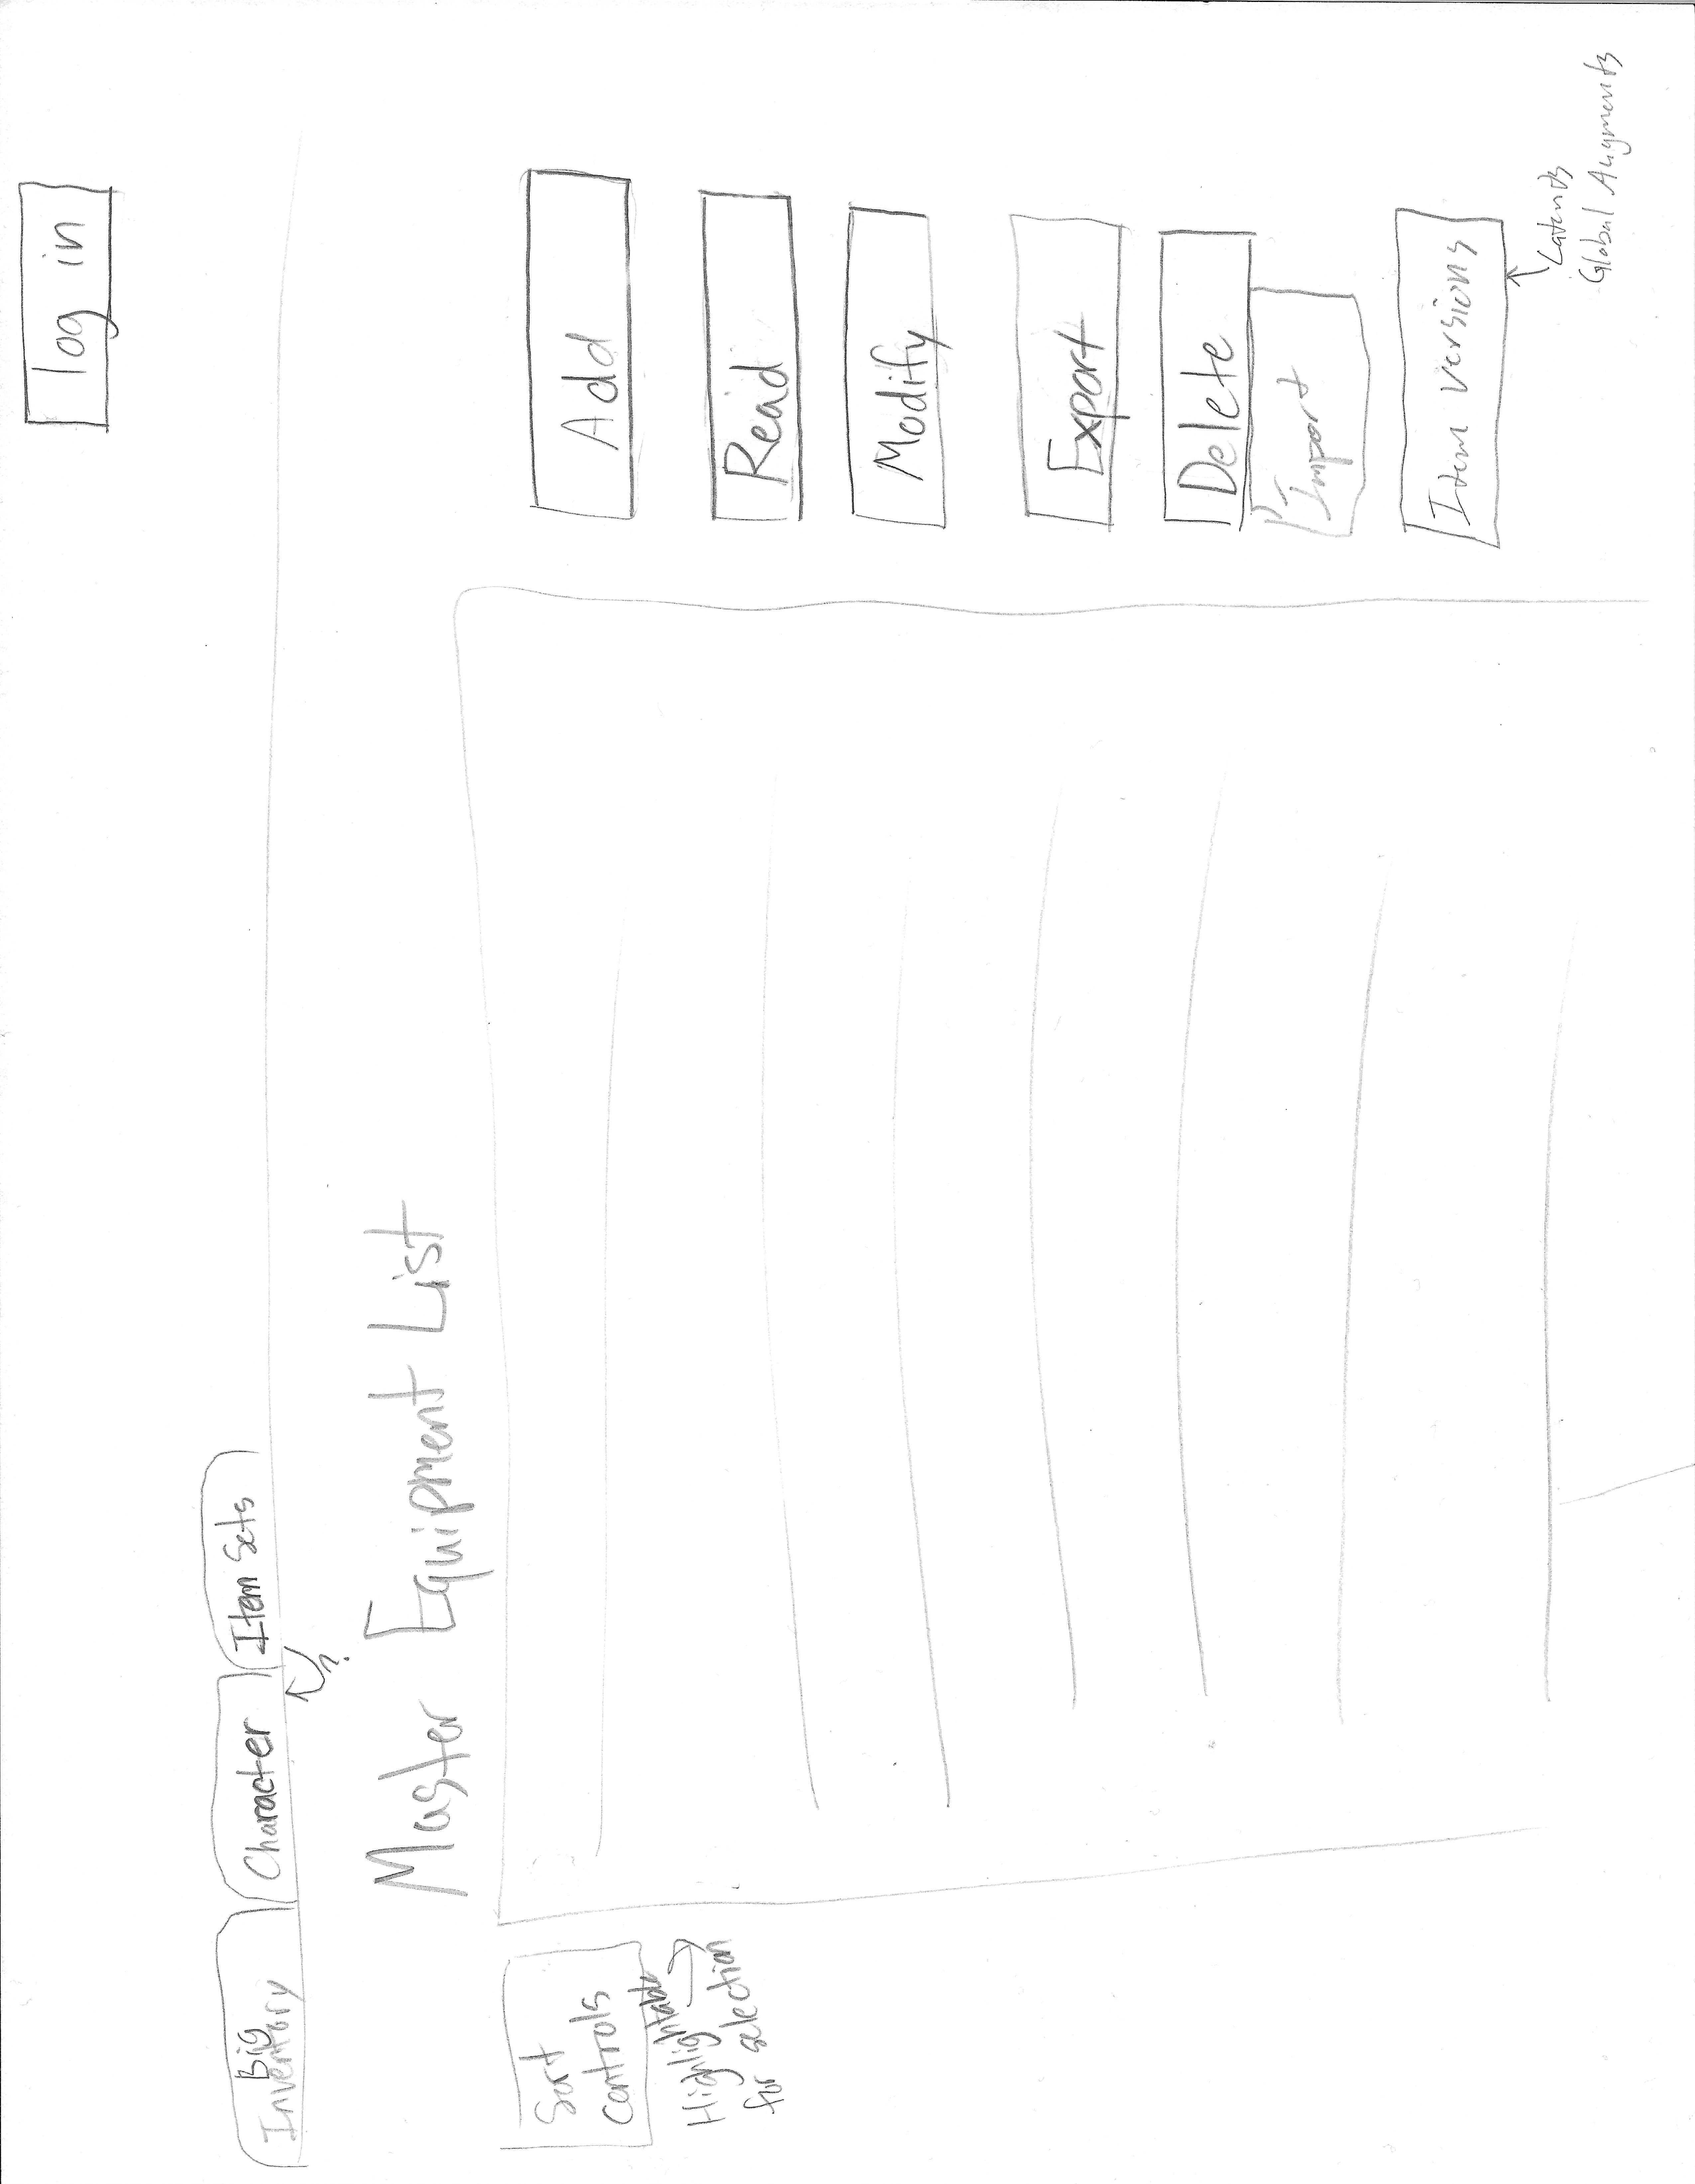 log in
Big
Inventory
Character
Item Sets
?
Master Equipment List
Sort
controls
Highlightable
for selection
Add
Read
Modify
Export
Delete
Import
Item Versions
Global Augments